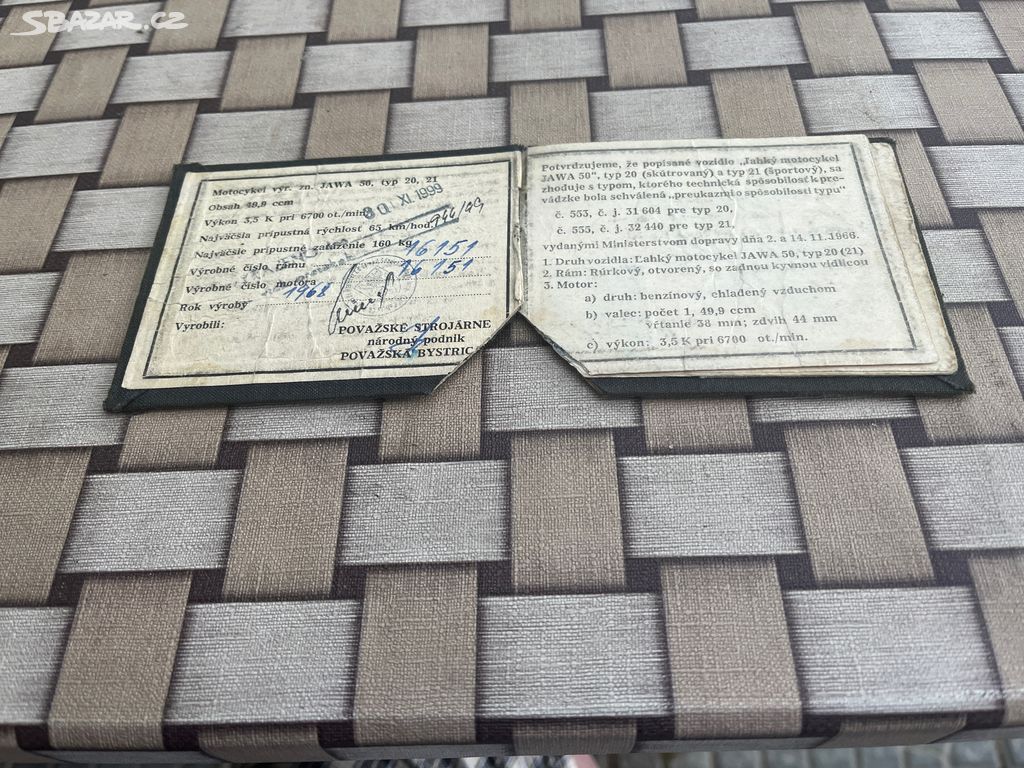 SBAZAR.CZ
Motocykel výr. zn. JAWA 50, typ 20, 21
Obsah 49,9 ccm
Výkon 3,5 K pri 6700 ot./min.
XI. 1999
Najväčšia prípustná rýchlosť 65 km/hod.
Najväčšie prípustné zaťaženie 160 kg
Výrobné číslo rámu 16151
Výrobné číslo motora 16151
Rok výroby 1968
Vyrobili:
POVAŽSKÉ STROJÁRNE
národný podnik
POVAŽSKÁ BYSTRIC
Potvrdzujeme, že popísané vozidlo „Ľahký motocykel
JAWA 50", typ 20 (skútrovaný) a typ 21 (športový), sa
zhoduje s typom, ktorého technická spôsobilosť k pre-
vádzke bola schválená „preukazmi o spôsobilosti typu"
č. 553, č. j. 31 604 pre typ 20,
č. 555, č. j. 32 440 pre typ 21,
vydanými Ministerstvom dopravy dňa 2. a 14. 11. 1966.
1. Druh vozidla: Ľahký motocykel JAWA 50, typ 20 (21)
2. Rám: Rúrkový, otvorený, so zadnou kyvnou vidlicou
3. Motor:
a) druh: benzínový, chladený vzduchom
b) valec: počet 1, 49,9 ccm
vŕtanie 38 mm; zdvih 44 mm
c) výkon: 3,5 K pri 6700 ot./min.